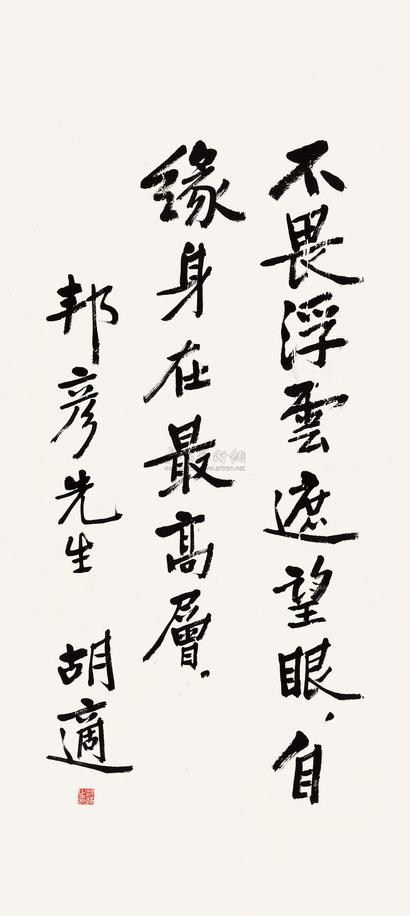 不畏浮雲遮望眼，自
緣身在最高層．
邦彥先生 胡適
www.artron.net